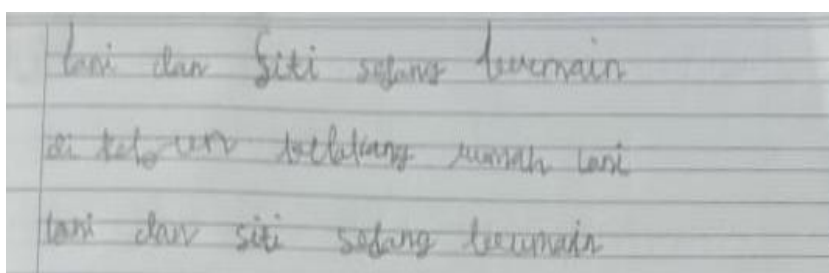 Lani dan Siti sedang bermain
di kebun belakang rumah Lani
Lani dan siti sedang bermain